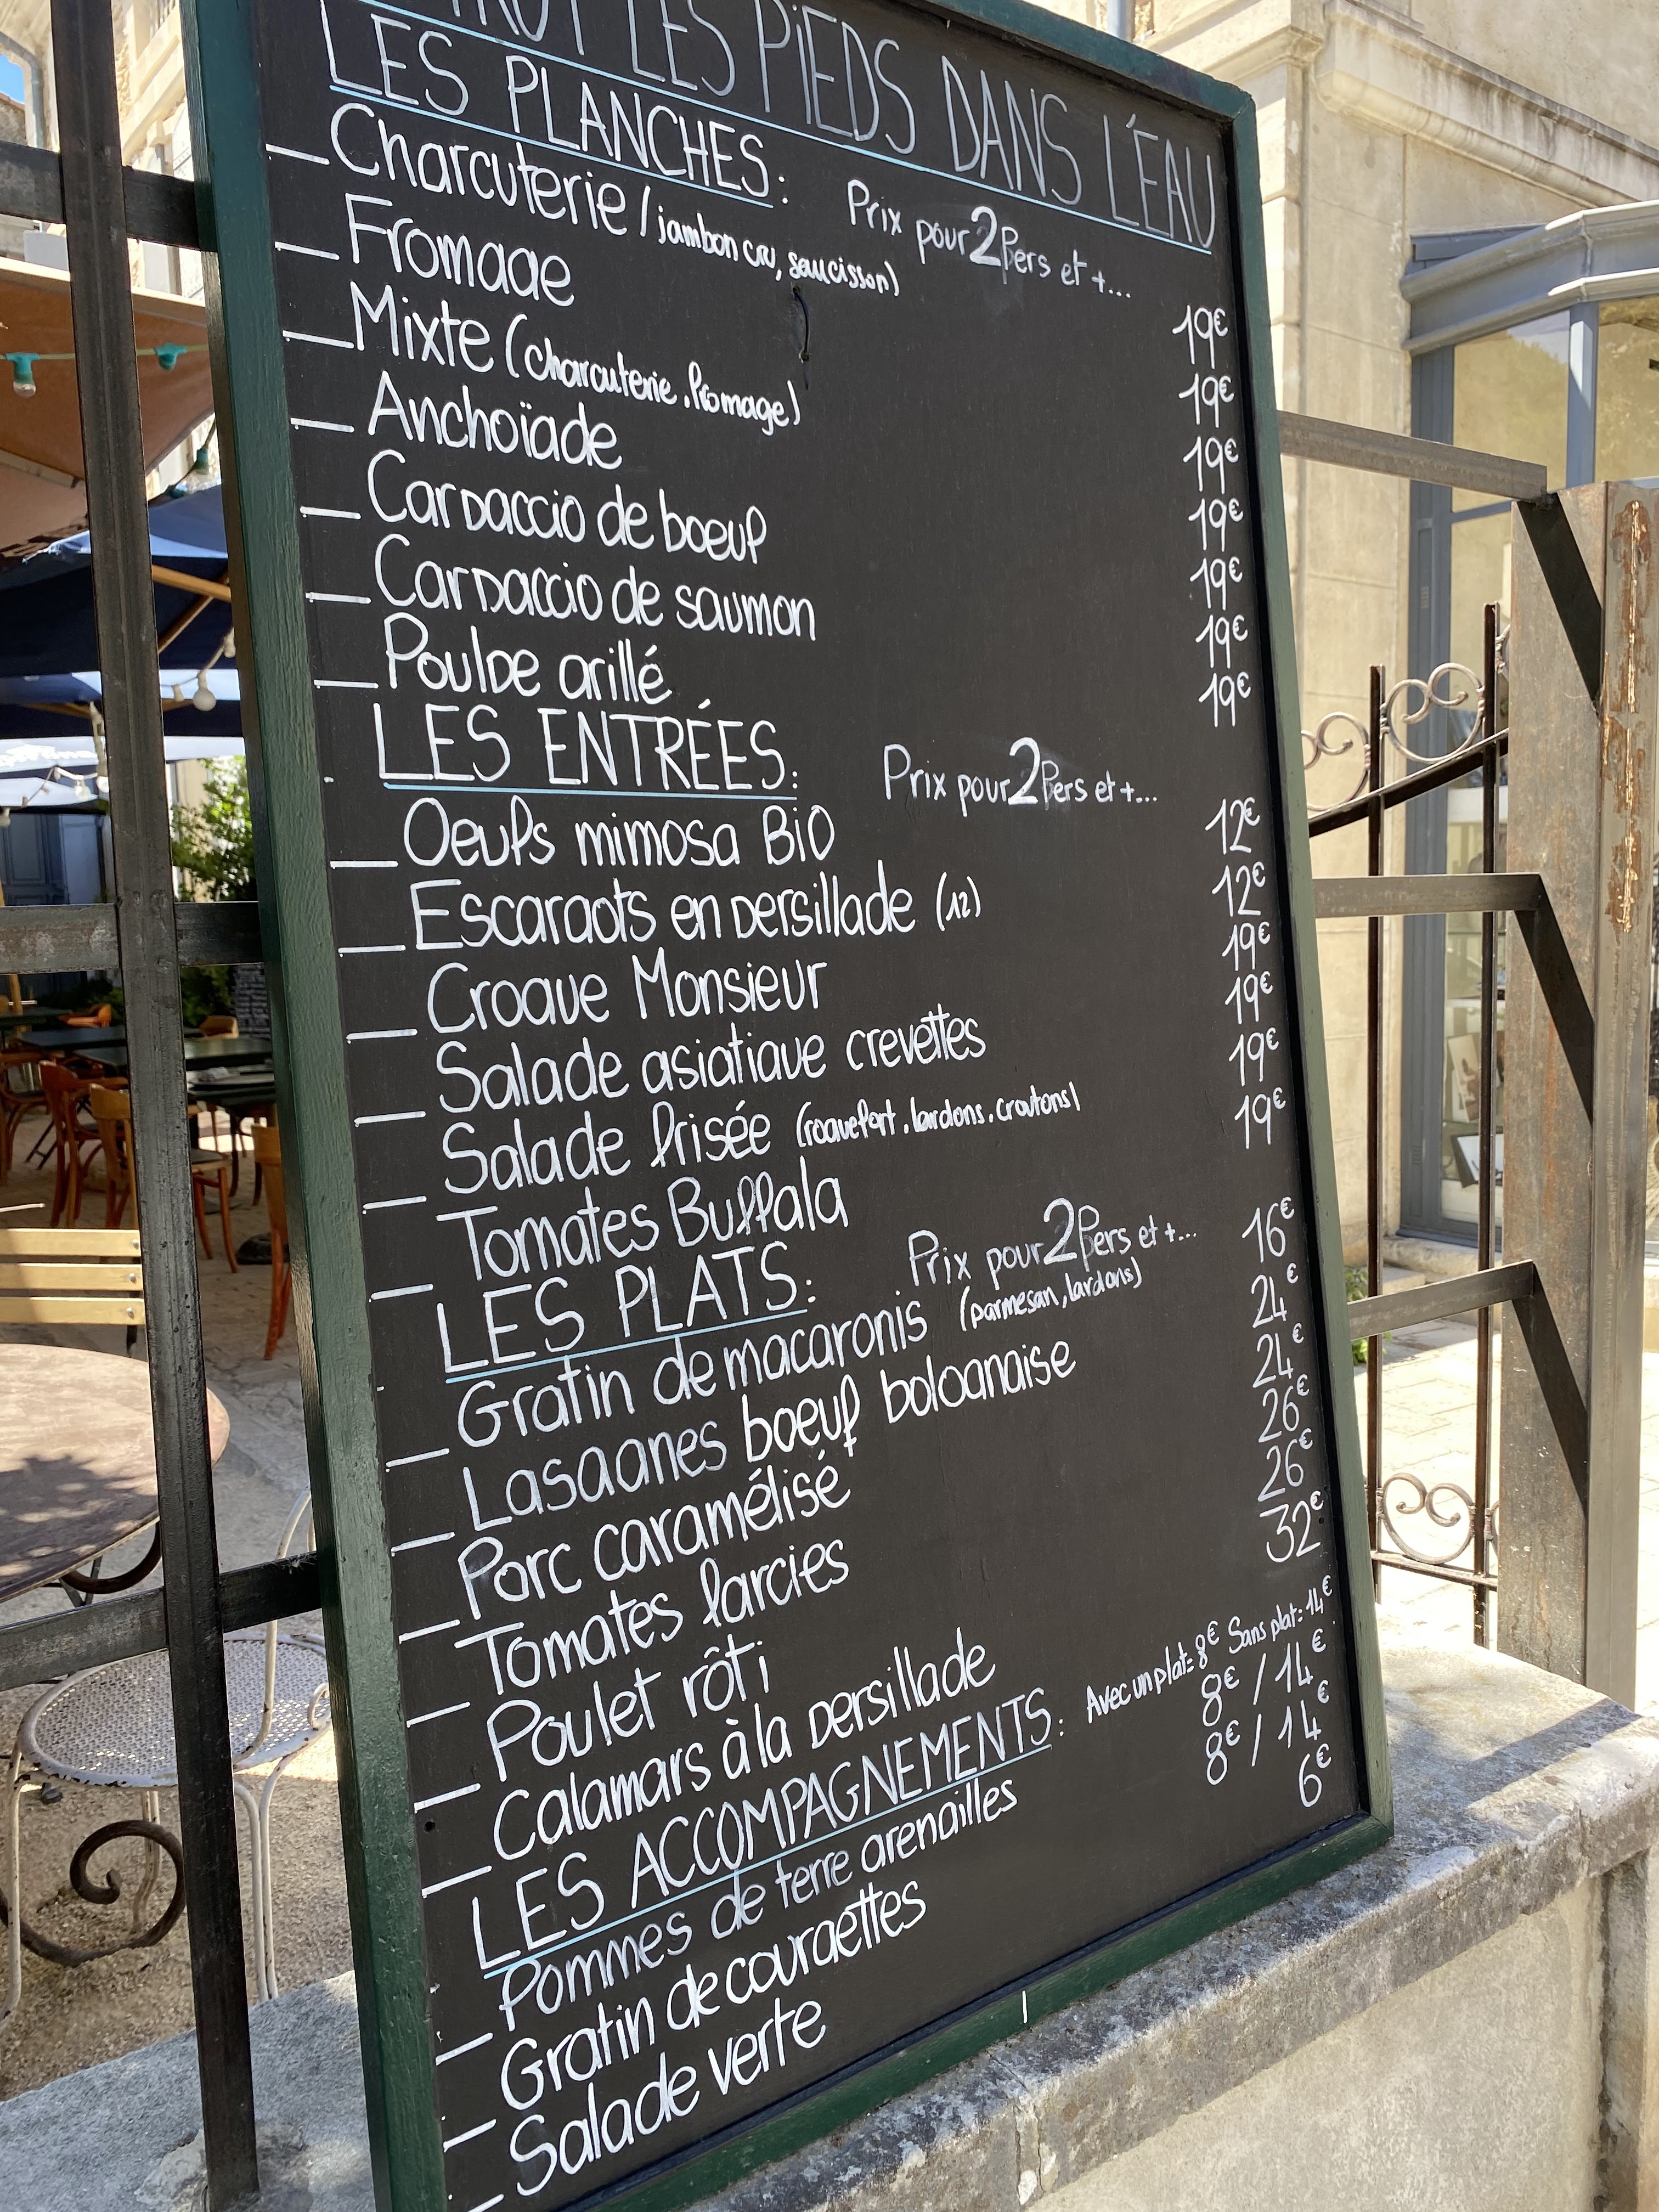 LES PIEDS DANS L'EAU
LES PLANCHES: Prix pour 2 Pers et +...
_ Charcuterie (jambon cru, saucisson) 19€
_ Fromage 19€
_ Mixte (charcuterie, fromage) 19€
_ Anchoïade 19€
_ Carpaccio de boeuf 19€
_ Carpaccio de saumon 19€
_ Poulpe grillé 19€
LES ENTRÉES: Prix pour 2 Pers et +...
_ Oeufs mimosa BiO 12€
_ Escargots en persillade (12) 12€
_ Croque Monsieur 19€
_ Salade asiatique crevettes 19€
_ Salade frisée (roquefort, lardons, croutons) 19€
_ Tomates Buffala 19€
LES PLATS: Prix pour 2 Pers et +...
_ Gratin de macaronis (parmesan, lardons) 16€
_ Lasagnes boeuf bolognaise 24€
_ Porc caramélisé 24€
_ Tomates farcies 26€
_ Poulet rôti 26€
_ Calamars à la persillade 32€
LES ACCOMPAGNEMENTS: Avec un plat: 8€ Sans plat: 14€
_ Pommes de terre grenailles 8€ / 14€
_ Gratin de courgettes 8€ / 14€
_ Salade verte 6€